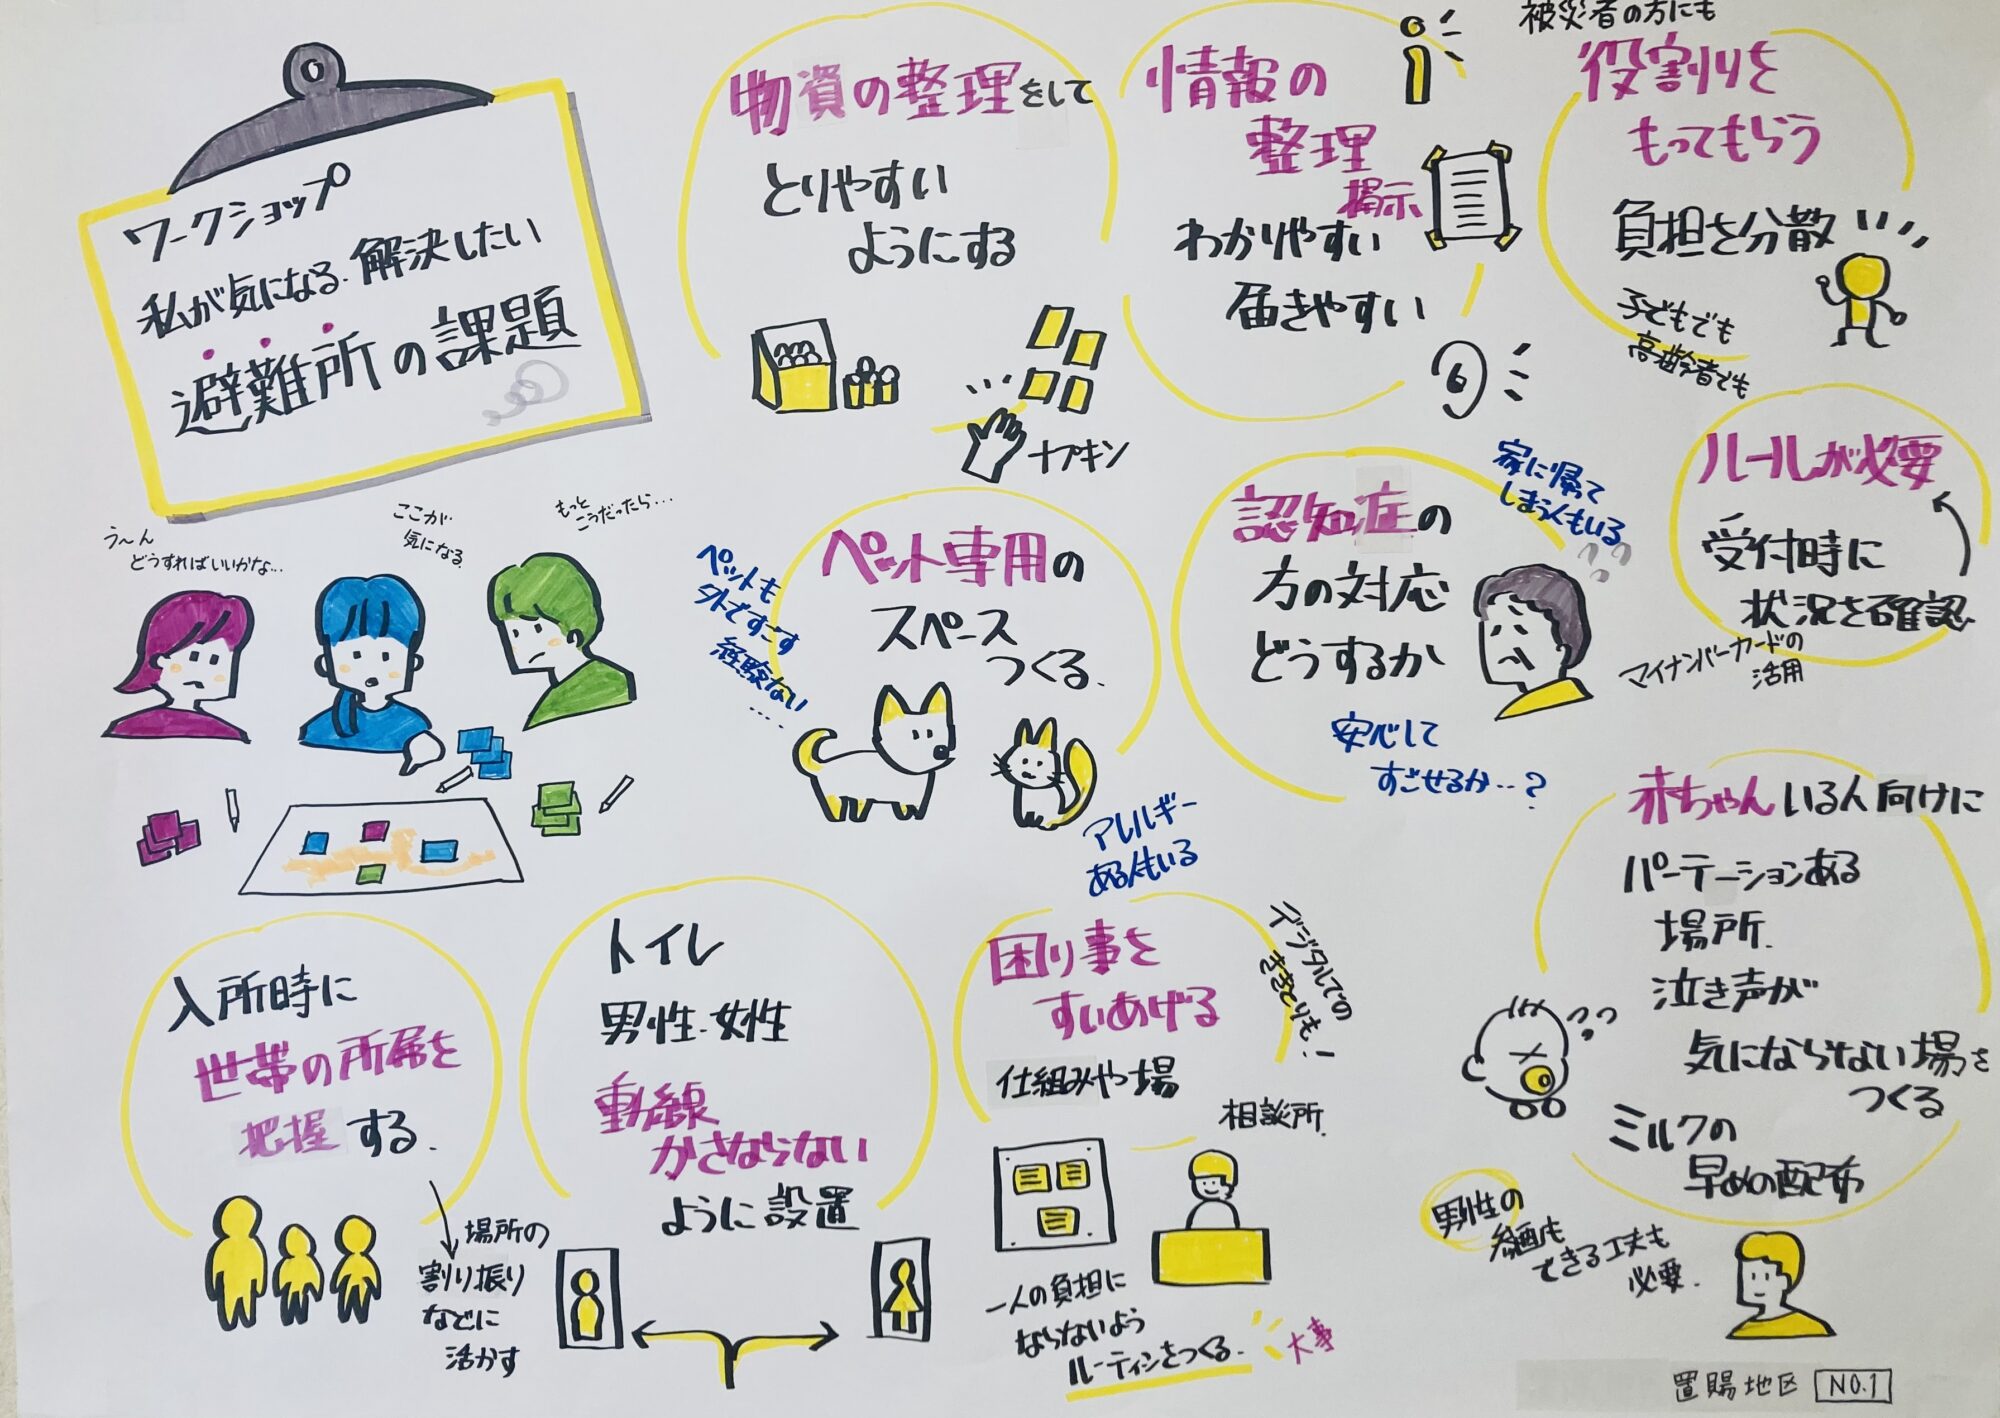 ワークショップ
私が気になる・解決したい
避難所の課題
う〜ん
どうすればいいかな…
ここが
気になる
もっと
こうだったら…
物資の整理をして
とりやすい
ようにする
ナプキン
情報の
整理
掲示
わかりやすい
届きやすい
被災者の方にも
役割りを
もってもらう
負担を分散
子どもでも
高齢者でも
ペット専用の
スペース
つくる.
ペットも
外ですごす
経験ない
....
アレルギー
ある人もいる
認知症の
方の対応
どうするか
家に帰って
しまう人もいる
安心して
すごせるか…?
ルールが必要
受付時に
状況を確認
マイナンバーカードの
活用
赤ちゃんいる人向けに
パーテーションある
場所.
泣き声が
気にならない場を
つくる
ミルクの
早めの配布
男性の
参画も
できる工夫も
必要.
入所時に
世帯の所属を
把握する.
場所の
割り振り
などに
活かす
トイレ
男性・女性
動線
かさならない
ように設置
困り事を
すいあげる
仕組みや場
デジタルでの
ききとりも!
相談所.
一人の負担に
ならないよう
ルーティンをつくる.
大事
置賜地区 NO.1